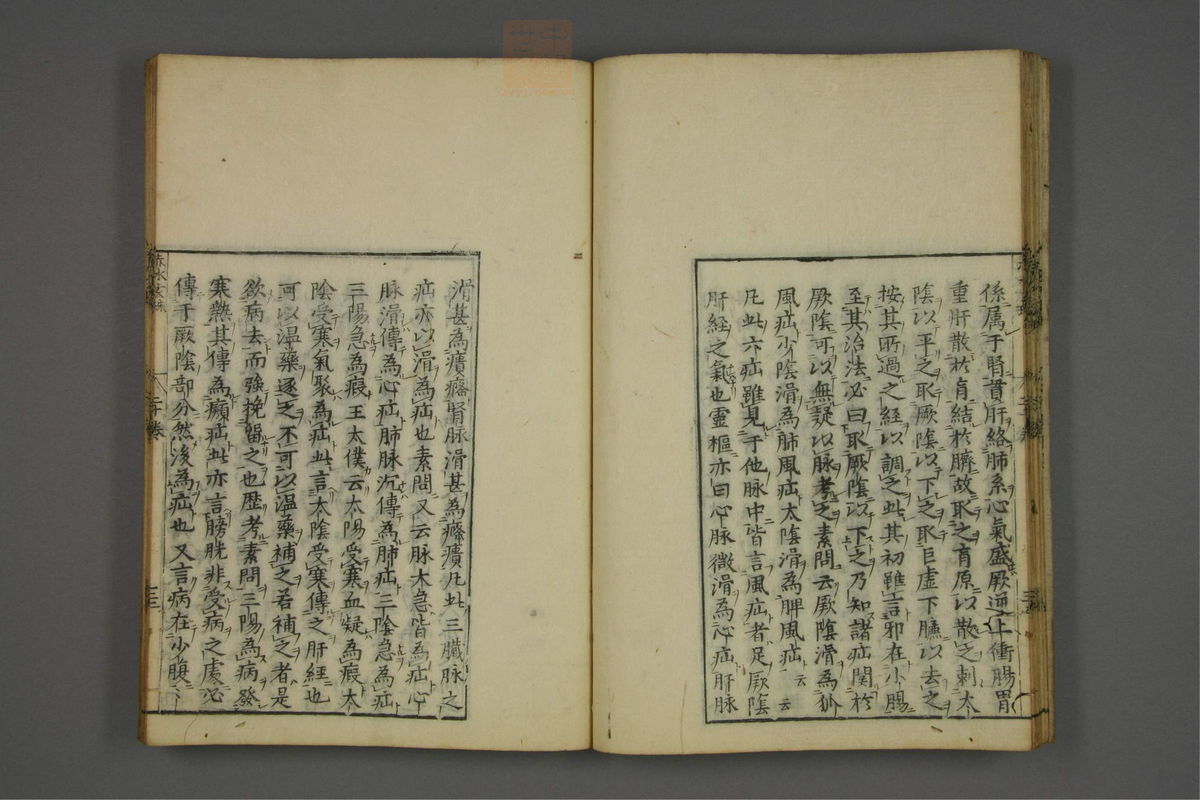 係属于腎貫肝絡肺系心氣盛厥逆上衝腸胃
重肝散於肓結於臍故取之肓原以散之刺太
陰以平之取厥陰以下之取巨虚下臑以去之
按其所過之経以調之此其初雖言邪在小腸
至其治法必曰取厥陰以下之乃知諸疝関於
厥陰可以無疑以脉考之素問云厥陰滑為狐
風疝少陰滑為肺風疝太陰滑為脾風疝云云
凡此六疝雖見于他脉中皆言風疝者足厥陰
肝經之氣也靈樞亦曰心脉微滑為心疝肝脉
滑甚為㿉癃腎脉滑甚為癃㿉凡此三臓脉之
疝亦以滑為疝也素問又云脉大急皆為疝心
脉滑傳為心疝肺脉沉傳為肺疝三陰急為疝
三陽急為瘕王太僕云太陽受寒血凝為瘕太
陰受寒氣聚為疝此言太陰受寒傳之肝經也
可以温藥逐之不可以温藥補之若補之者是
欲病去而強挽留之也歴考素問三陽為病發
寒熱其傳為㿗疝此亦言膀胱非受病之處必
傳于厥陰部分然後為疝也又言病在少腹
赤水玄珠
二十卷
三三